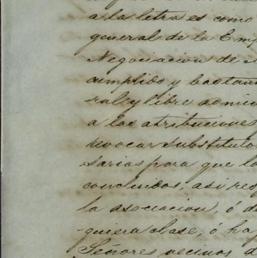 a la letra es como
general de la Emp
Negociacion de
cumplido y bastan
ral y libre admin
a las atribuciones
revocar substituto
sarias para que lo
concluidos; asi resp
la asociacion, ó d
quiera clase, ó ha
Señores vecinos d